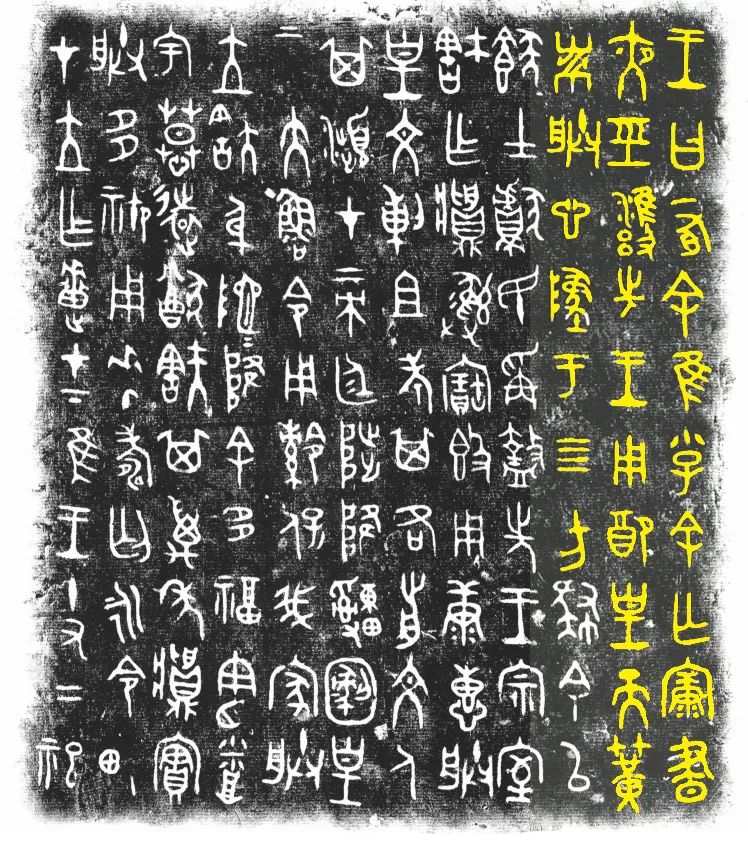 王曰有余隹小子余亡康晝
夜巠雝先王用配皇天簧
黹朕心墜于四方肆余以
士獻民爯盩先王宗室
㝬作彝寶簋用康惠朕
皇文剌祖考其各前文人
其瀕才帝廷陟降申皇
大魯令用保我家朕
立㝬身阤阤降余多福憲烝
宇慕遠猷㝬其萬年實
朕多禦用壽匄永令畯
才立作疐才下隹王十又二祀